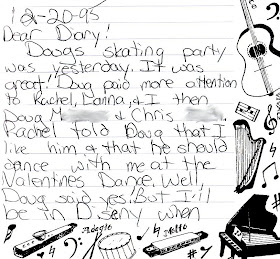 2-20-95
Dear Diary!
Dougs skating party
was yesterday. It was
great! Doug paid more attention
to Rachel, Danna, & I then
Doug M & Chris
Rachel told Doug that I
like him & that he should
dance with me at the
Valentines Dance. Well,
Doug said yes. But I'll
be in Diseny when
Adagio